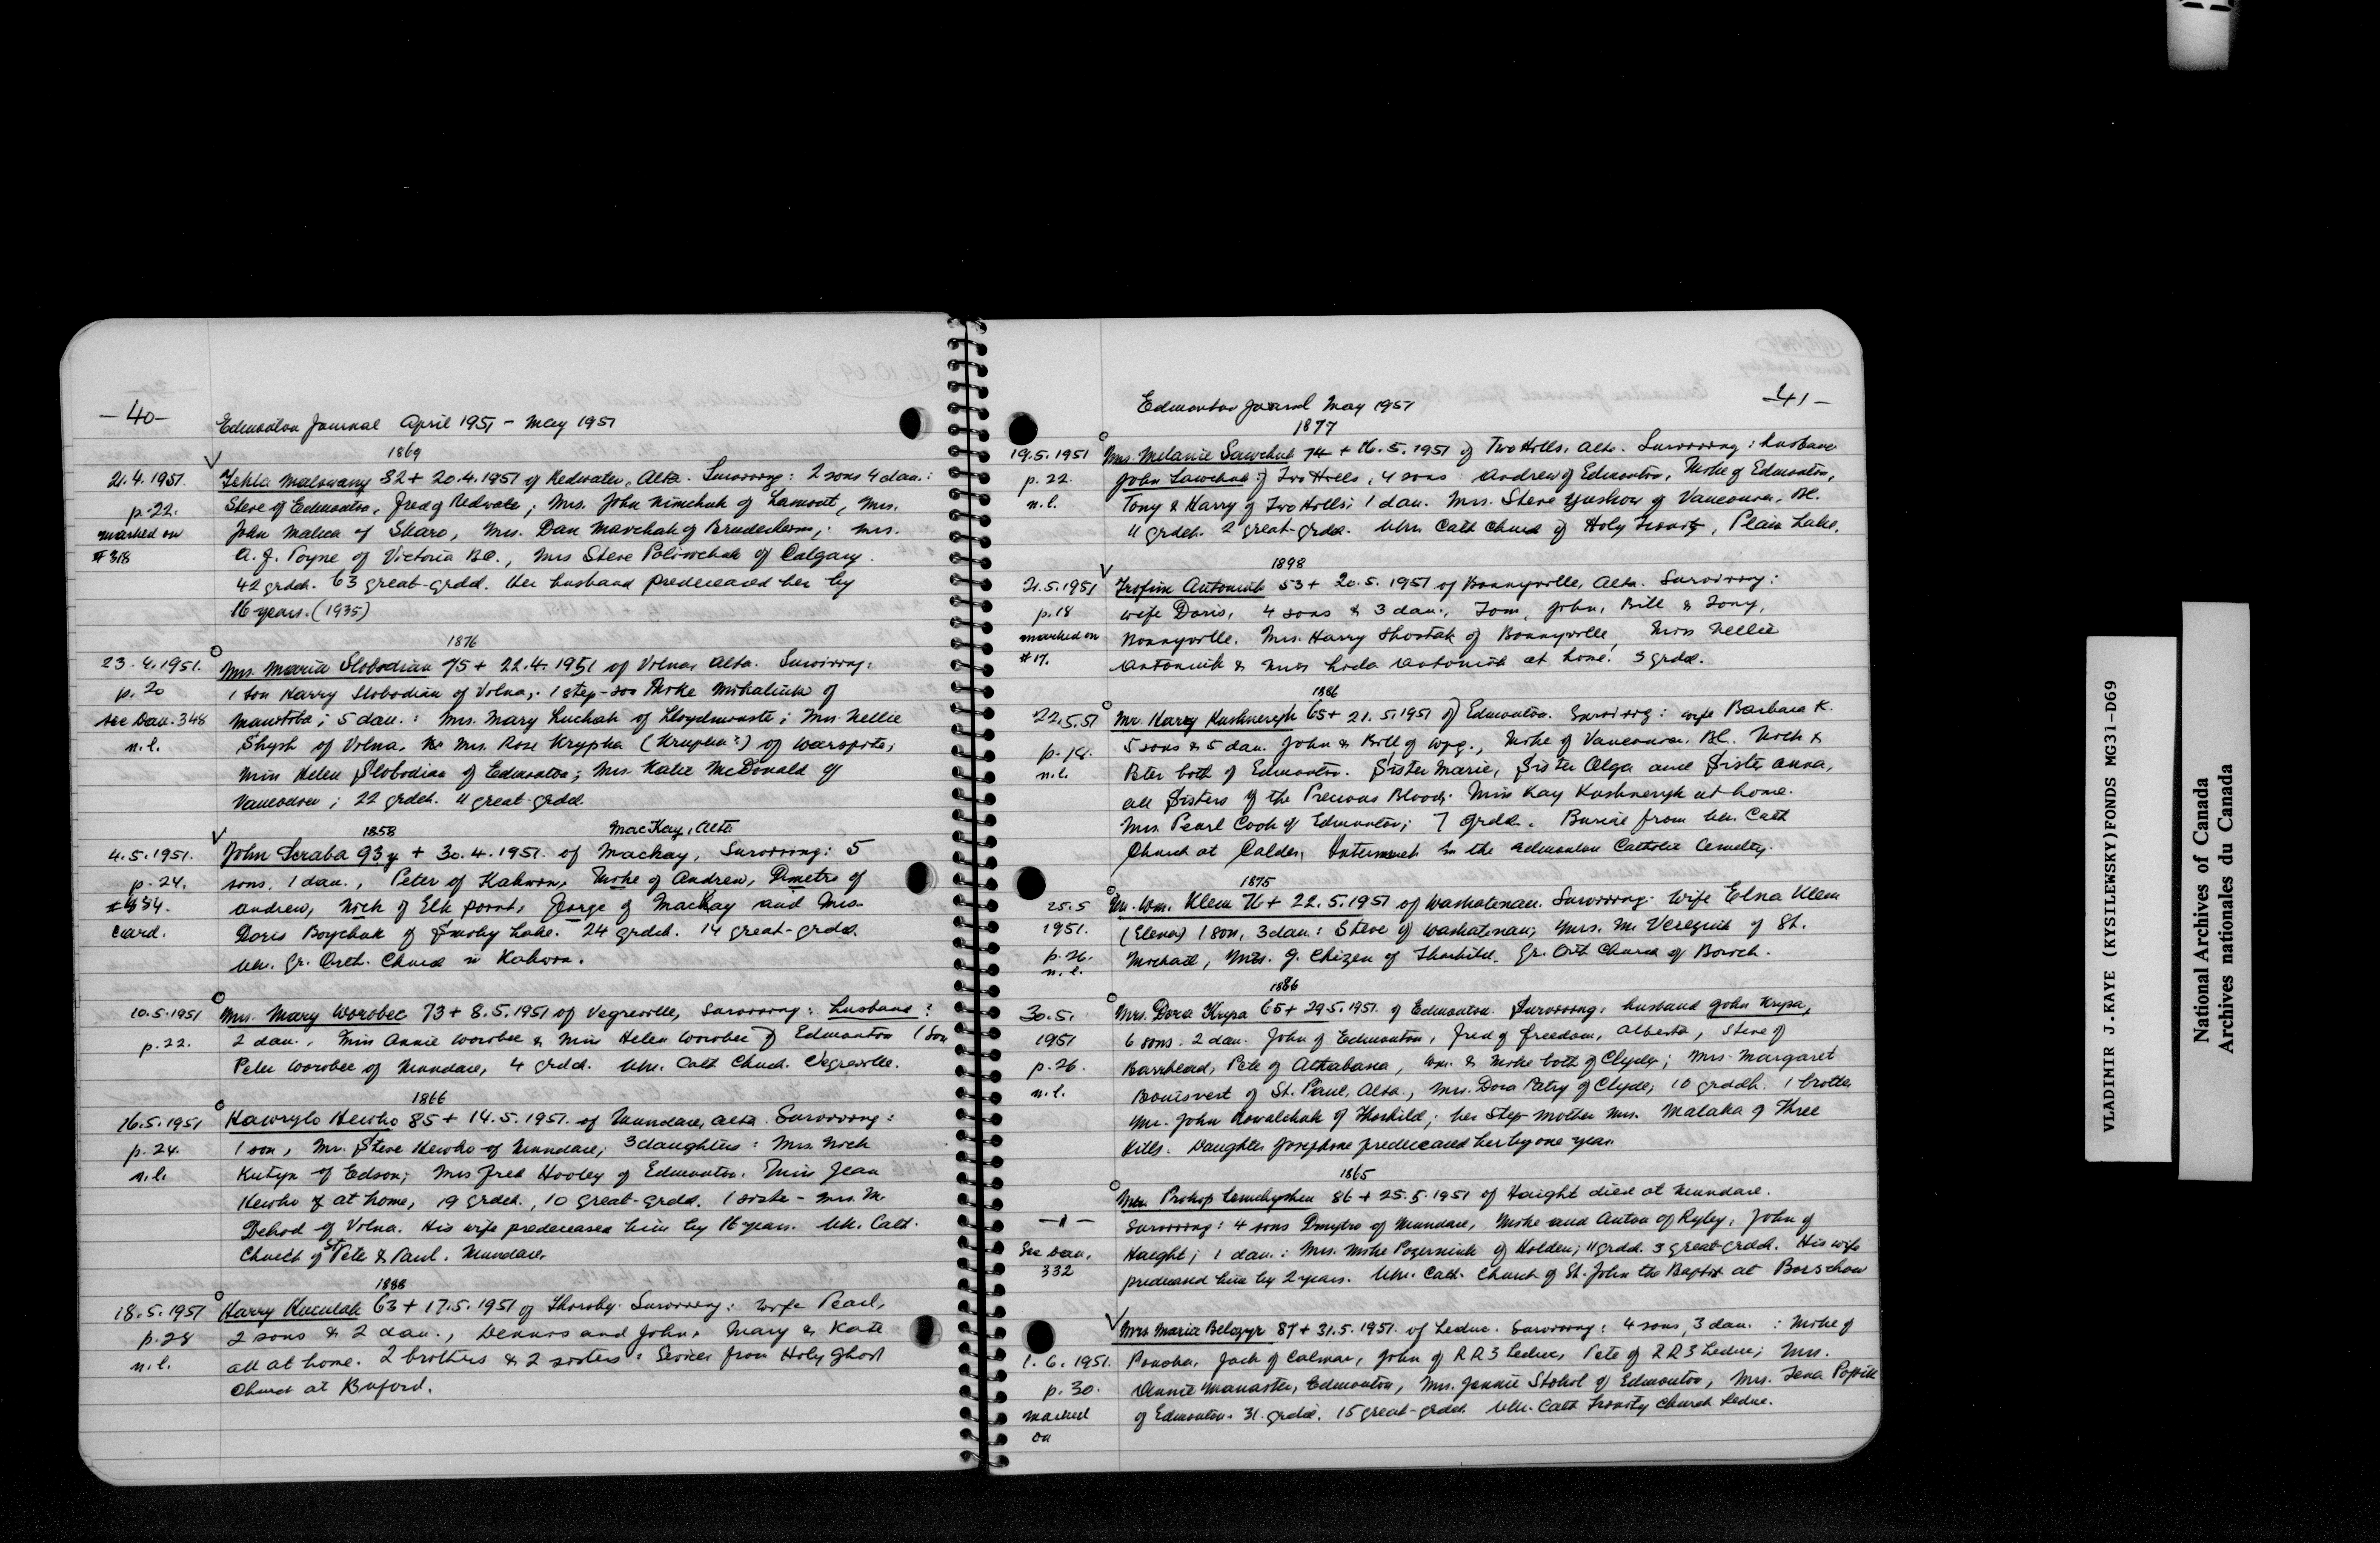 -40-
Edmonton Journal April 1951 - May 1951
1869
21.4.1951. Tekla Malowany 82 + 20.4.1951 of Redwater, Alta. Surviving: 2 sons 4 dau.:
p.22. Steve of Edmonton, Fred of Redwater; Mrs. John Nimchuk of Lamont, Mrs.
marked on John Malica of Skaro, Mrs. Dan Marchak of Bruderheim; Mrs.
#318 A. J. Poyne of Victoria B.C., Mrs Steve Poliwchak of Calgary.
42 grdch. 63 great-grdd. Her husband predeceased her by
16 years. (1935)
1876
23.4.1951. Mrs. Maria Slobodian 75 + 22.4.1951 of Vilna, Alta. Surviving:
p.20 1 son Harry Slobodian of Vilna,. 1 step-son Mike Mihaliuk of
see Dau. 348 Manitoba; 5 dau.: Mrs. Mary Luchak of Lloydminster; Mrs. Nellie
n.l. Shysh of Vilna, Mrs. Rose Krypka (Krupka?) of Warspite;
Miss Helen Slobodian of Edmonton; Mrs. Katie McDonald of
Vancouver; 22 grdch. 11 great-grdd.
1858 MacKay, Alta
4.5.1951. John Scraba 93 y + 30.4.1951. of Mackay, Surviving: 5
p.24. sons, 1 dau., Peter of Kahwin, Mike of Andrew, Dmetro of
#334. Andrew, Nick of Elk Point, George of MacKay and Mrs.
card. Doris Boychuk of Smoky Lake. 24 grdch. 14 great-grdd.
Ukr. Gr. Orth. Church in Kahwin.
10.5.1951 Mrs. Mary Worobec 73 + 8.5.1951 of Vegreville, Surviving: husband?
p.22. 2 dau., Miss Annie Worobec & Miss Helen Worobec of Edmonton 1 son
Peter Worobec of Mundare, 4 grdd. Ukr. Cath Church. Vegreville.
1866
16.5.1951 Hawrylo Hewko 85 + 14.5.1951. of Mundare, Alta. Surviving:
p.24. 1 son, Mr. Steve Hewko of Mundare; 3 daughters: Mrs. Nick
n.l. Kutyn of Edson; Mrs Fred Hooley of Edmonton. Miss Jean
Hewko at home, 19 grdch., 10 great-grdd. 1 sister - Mrs. M.
Dekod of Vilna. His wife predeceased him by 16 years. Ukr. Cath.
Church of St Pete & Paul. Mundare.
1888
18.5.1951 Harry Kuculak 63 + 17.5.1951 of Thorsby. Surviving: wife Pearl,
p.28 2 sons & 2 dau., Dennis and John, Mary & Kate
n.l. all at home. 2 brothers & 2 sisters: Services from Holy Ghost
Church at Buford.
-41-
Edmonton Journal May 1951
1877
19.5.1951 Mrs. Melanie Sawchuk 74 + 16.5.1951 of Two Hills, Alta. Surviving: husband
p.22. John Sawchuk of Two Hills, 4 sons Andrew of Edmonton, Mike of Edmonton,
n.l. Tony & Harry of Two Hills; 1 dau. Mrs. Steve Yushow of Vancouver, BC.
11 grdch. 2 great-grdd. Ukr. Cath Church of Holy Trinity, Plain Lake.
1898
21.5.1951 Trofim Antoniuk 53 + 20.5.1951 of Bonnyville, Alta. Surviving:
p.18 wife Doris, 4 sons & 3 dau., Tom, John, Bill & Tony,
marked on Bonnyville. Mrs. Harry Shostak of Bonnyville, Miss Nellie
#17. Antoniuk & Miss Lida Antoniuk at home! 3 grdd.
1886
22.5.51 Mr. Harry Kushneryk 65 + 21.5.1951 of Edmonton. Surviving: wife Barbara K.
p.18. 5 sons & 5 dau. John & Bill of Wpg., Mike of Vancouver, BC. Nick &
n.l. Peter both of Edmonton. Sister Marie, Sister Olga and Sister Anna,
all Sisters of the Precious Blood; Miss Kay Kushneryk at home.
Mrs. Pearl Cook of Edmonton; 7 grdd. Burial from Ukr. Cath
Church at Calder, Interment in the Edmonton Catholic Cemetry.
1875
25.5 Mr. Wm. Klem 76 + 22.5.1951 of Waskatenau. Surviving: wife Elna Klem
1951. (Elena) 1 son, 3 dau.: Steve of Waskatenau; Mrs. M. Vereguik of St.
p.26. Michael, Mrs. G. Chizen of Thorhild. Gr. Orth Church of Borvich.
n.l.
1886
30.5. Mrs. Dora Krysa 65 + 29.5.1951. of Edmonton. Surviving: husband John Krysa,
1951 6 sons. 2 dau. John of Edmonton, Fred of Freedom, Alberta, Steve of
p.26. Barrhead, Pete of Athabasca, Wm. & Mike both of Clyde; Mrs. Margaret
n.l. Bouisvert of St. Paul, Alta., Mrs. Dora Patry of Clyde; 10 grddch. 1 brother
Mr. John Kowalchuk of Thorhild; her step-mother Mrs. Malaka of Three
Hills. Daughter Josephine predeceased her by one year.
1865
Prokop Lemchyshen 86 + 25.5.1951 of Haight died at Mundare.
-"- Surviving: 4 sons Dmytro of Mundare, Mike and Anton of Ryley, John of
See Dau. Haight; 1 dau.: Mrs. Mike Pozerniuk of Holden; 11 grdd. 3 great-grdd. His wife
332 predeased him by 2 years. Ukr. Cath. Church of St. John the Baptist at Borschow
Mrs Maria Belozyr 87 + 31.5.1951. of Leduc. Surviving: 4 sons, 3 dau. : Mike of
1.6.1951. Ponoka, Jack of Calmar, John of RR3 Leduc, Pete of RR3 Leduc; Mrs.
p.30. Annie Manaster, Edmonton, Mrs. Jennie Stokol of Edmonton, Mrs. Tena
marked of Edmonton. 31 grdd. 15 great-grdch Ukr. Cath Trinity Church Leduc.
on
VLADIMIR J.KAYE (KYSILEWSKY)FONDS MG31-D69
National Archives of Canada
Archives nationales du Canada